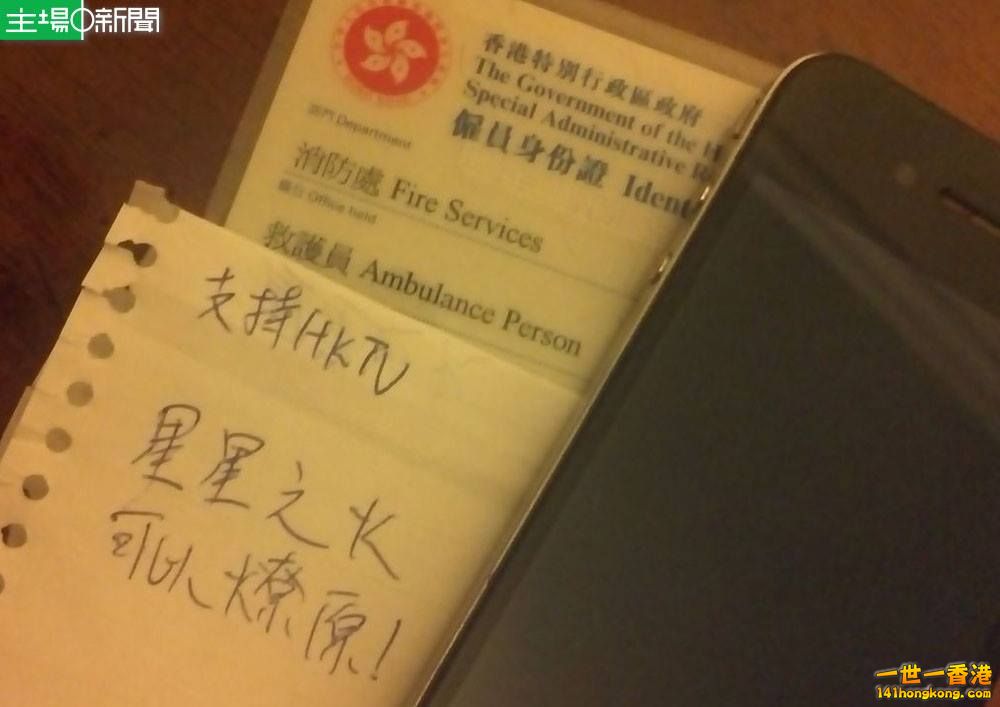 主場新聞
香港特別行政區政府
The Government of the H
Special Administrative R
僱員身份證 Ident
部門 Department
消防處 Fire Services
職位 Office held
救護員 Ambulance Person
支持HKTV
星星之火
可以燎原!
一世一香港
141hongkong.com